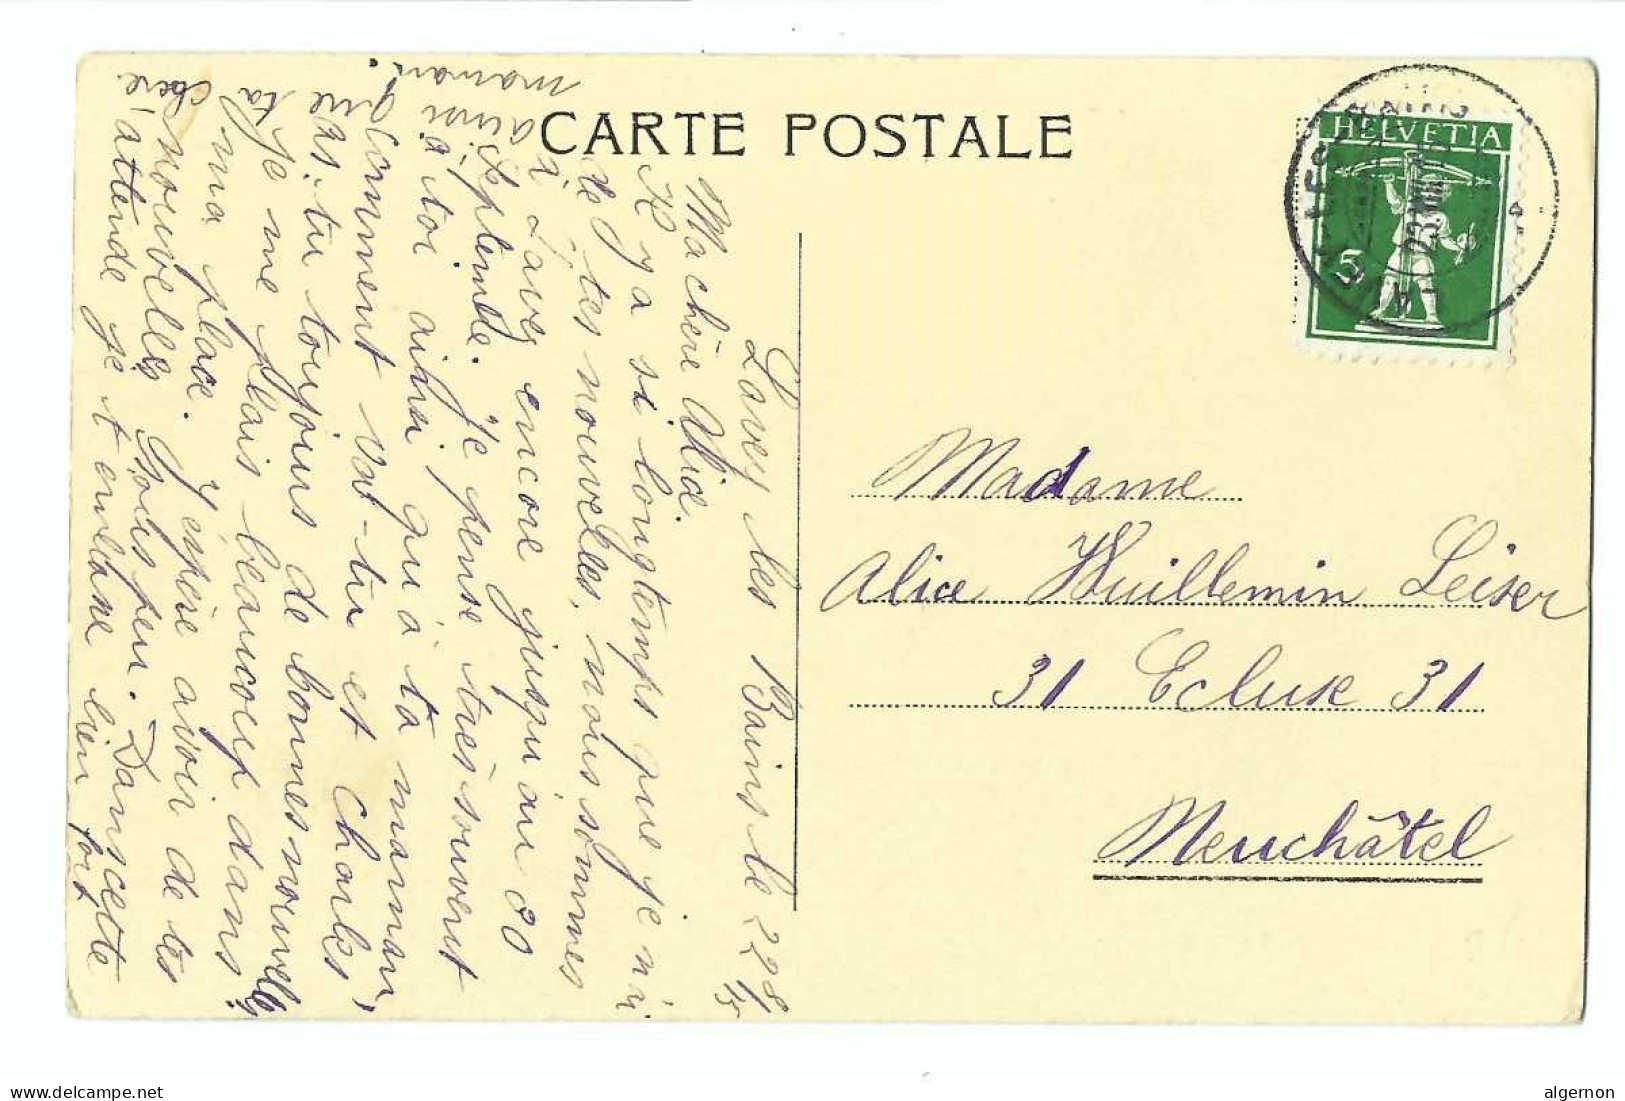 CARTE POSTALE
HELVETIA
5
LAVEY LES BAINS
23.VIII.15
Lavey les Bains le 22 8/15
Ma chère Alice.
Il y a si longtemps que je n'ai
de tes nouvelles, nous sommes
à Lavey encore jusqu'au 30
Septembe. Je pense très souvent
à toi ainsi qu'à ta maman,
Comment vat-tu et Charles
as-tu toujours de bonnes nouvelles
Je me plais beaucoup dans
ma place. J'éspère avoir de tes
nouvelles sous peu. Dans cette
attende je t'embrasse bien fort
chère
ta
que
ainsi
maman.
Madame
Alice Vuillemin Leiser
31 Ecluse 31
Neuchâtel
delcampe.net
algernon